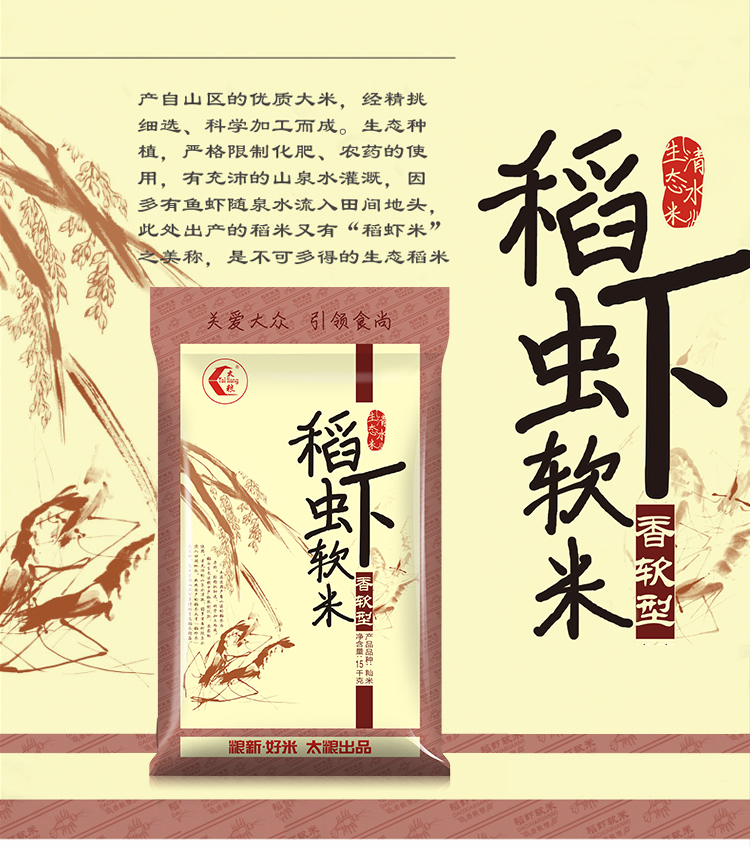 产自山区的优质大米，经精挑
细选、科学加工而成。生态种
植，严格限制化肥、农药的使
用，有充沛的山泉水灌溉，因
多有鱼虾随泉水流入田间地头，
此处出产的稻米又有“稻虾米”
之美称，是不可多得的生态稻米
清水
生态米
稻虾软米
香软型
关爱大众 引领食尚
太粮
Tai liang
清水
生态米
稻虾软米
香软型
产品品种：籼米
净含量：15千克
粮新·好米 太粮出品